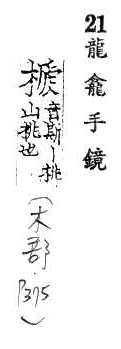 21龍龕手鏡
榹音斯〡桃
山桃也
(木部
P375)